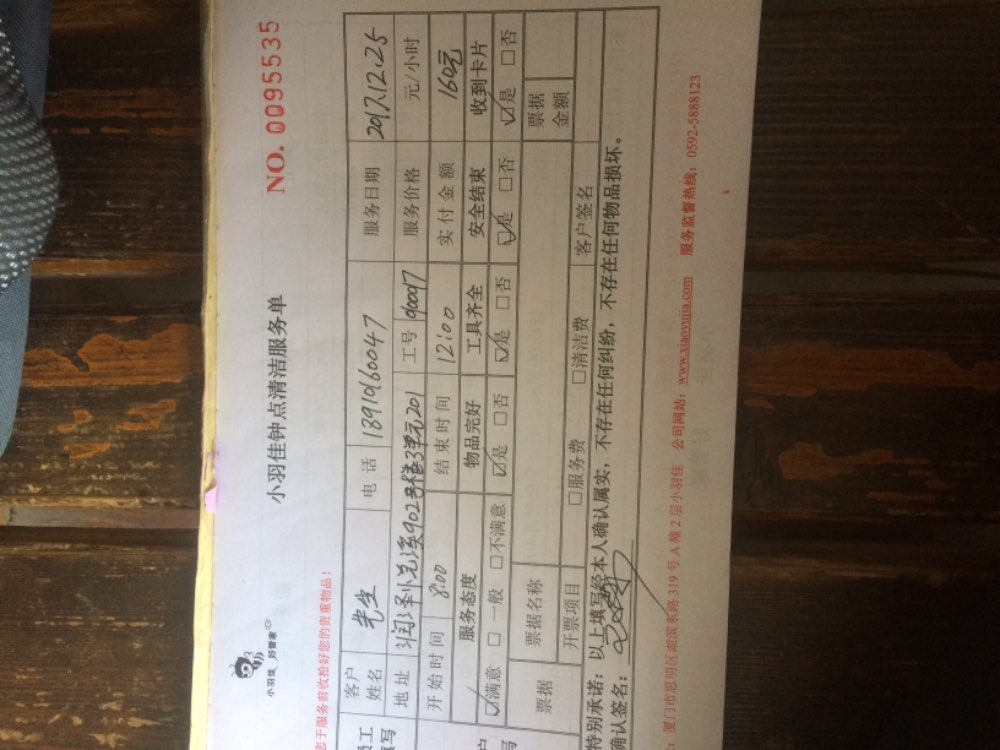 小羽佳 好管家
小羽佳钟点清洁服务单
NO. 0095535
于服务前收拾好您的贵重物品!
客户姓名 先生 电话 13910160047 服务日期 2017.12.25
地址 902号楼3单元201 工号 服务价格 元/小时
开始时间 8:00 结束时间 12:00 实付金额 160元
服务态度 物品完好 工具齐全 安全结束 收到卡片
☑满意 □一般 □不满意 ☑是 □否 ☑是 □否 ☑是 □否 ☑是 □否
票据 票据名称 票据金额
开票项目 □服务费 □清洁费 客户签名
特别承诺:以上填写经本人确认属实,不存在任何纠纷,不存在任何物品损坏。
确认签名:
厦门市思明区湖滨东路 319 号 A 幢 2 层小羽佳 公司网站:www.xiaoyujia.com 服务监督热线:0592-5888123